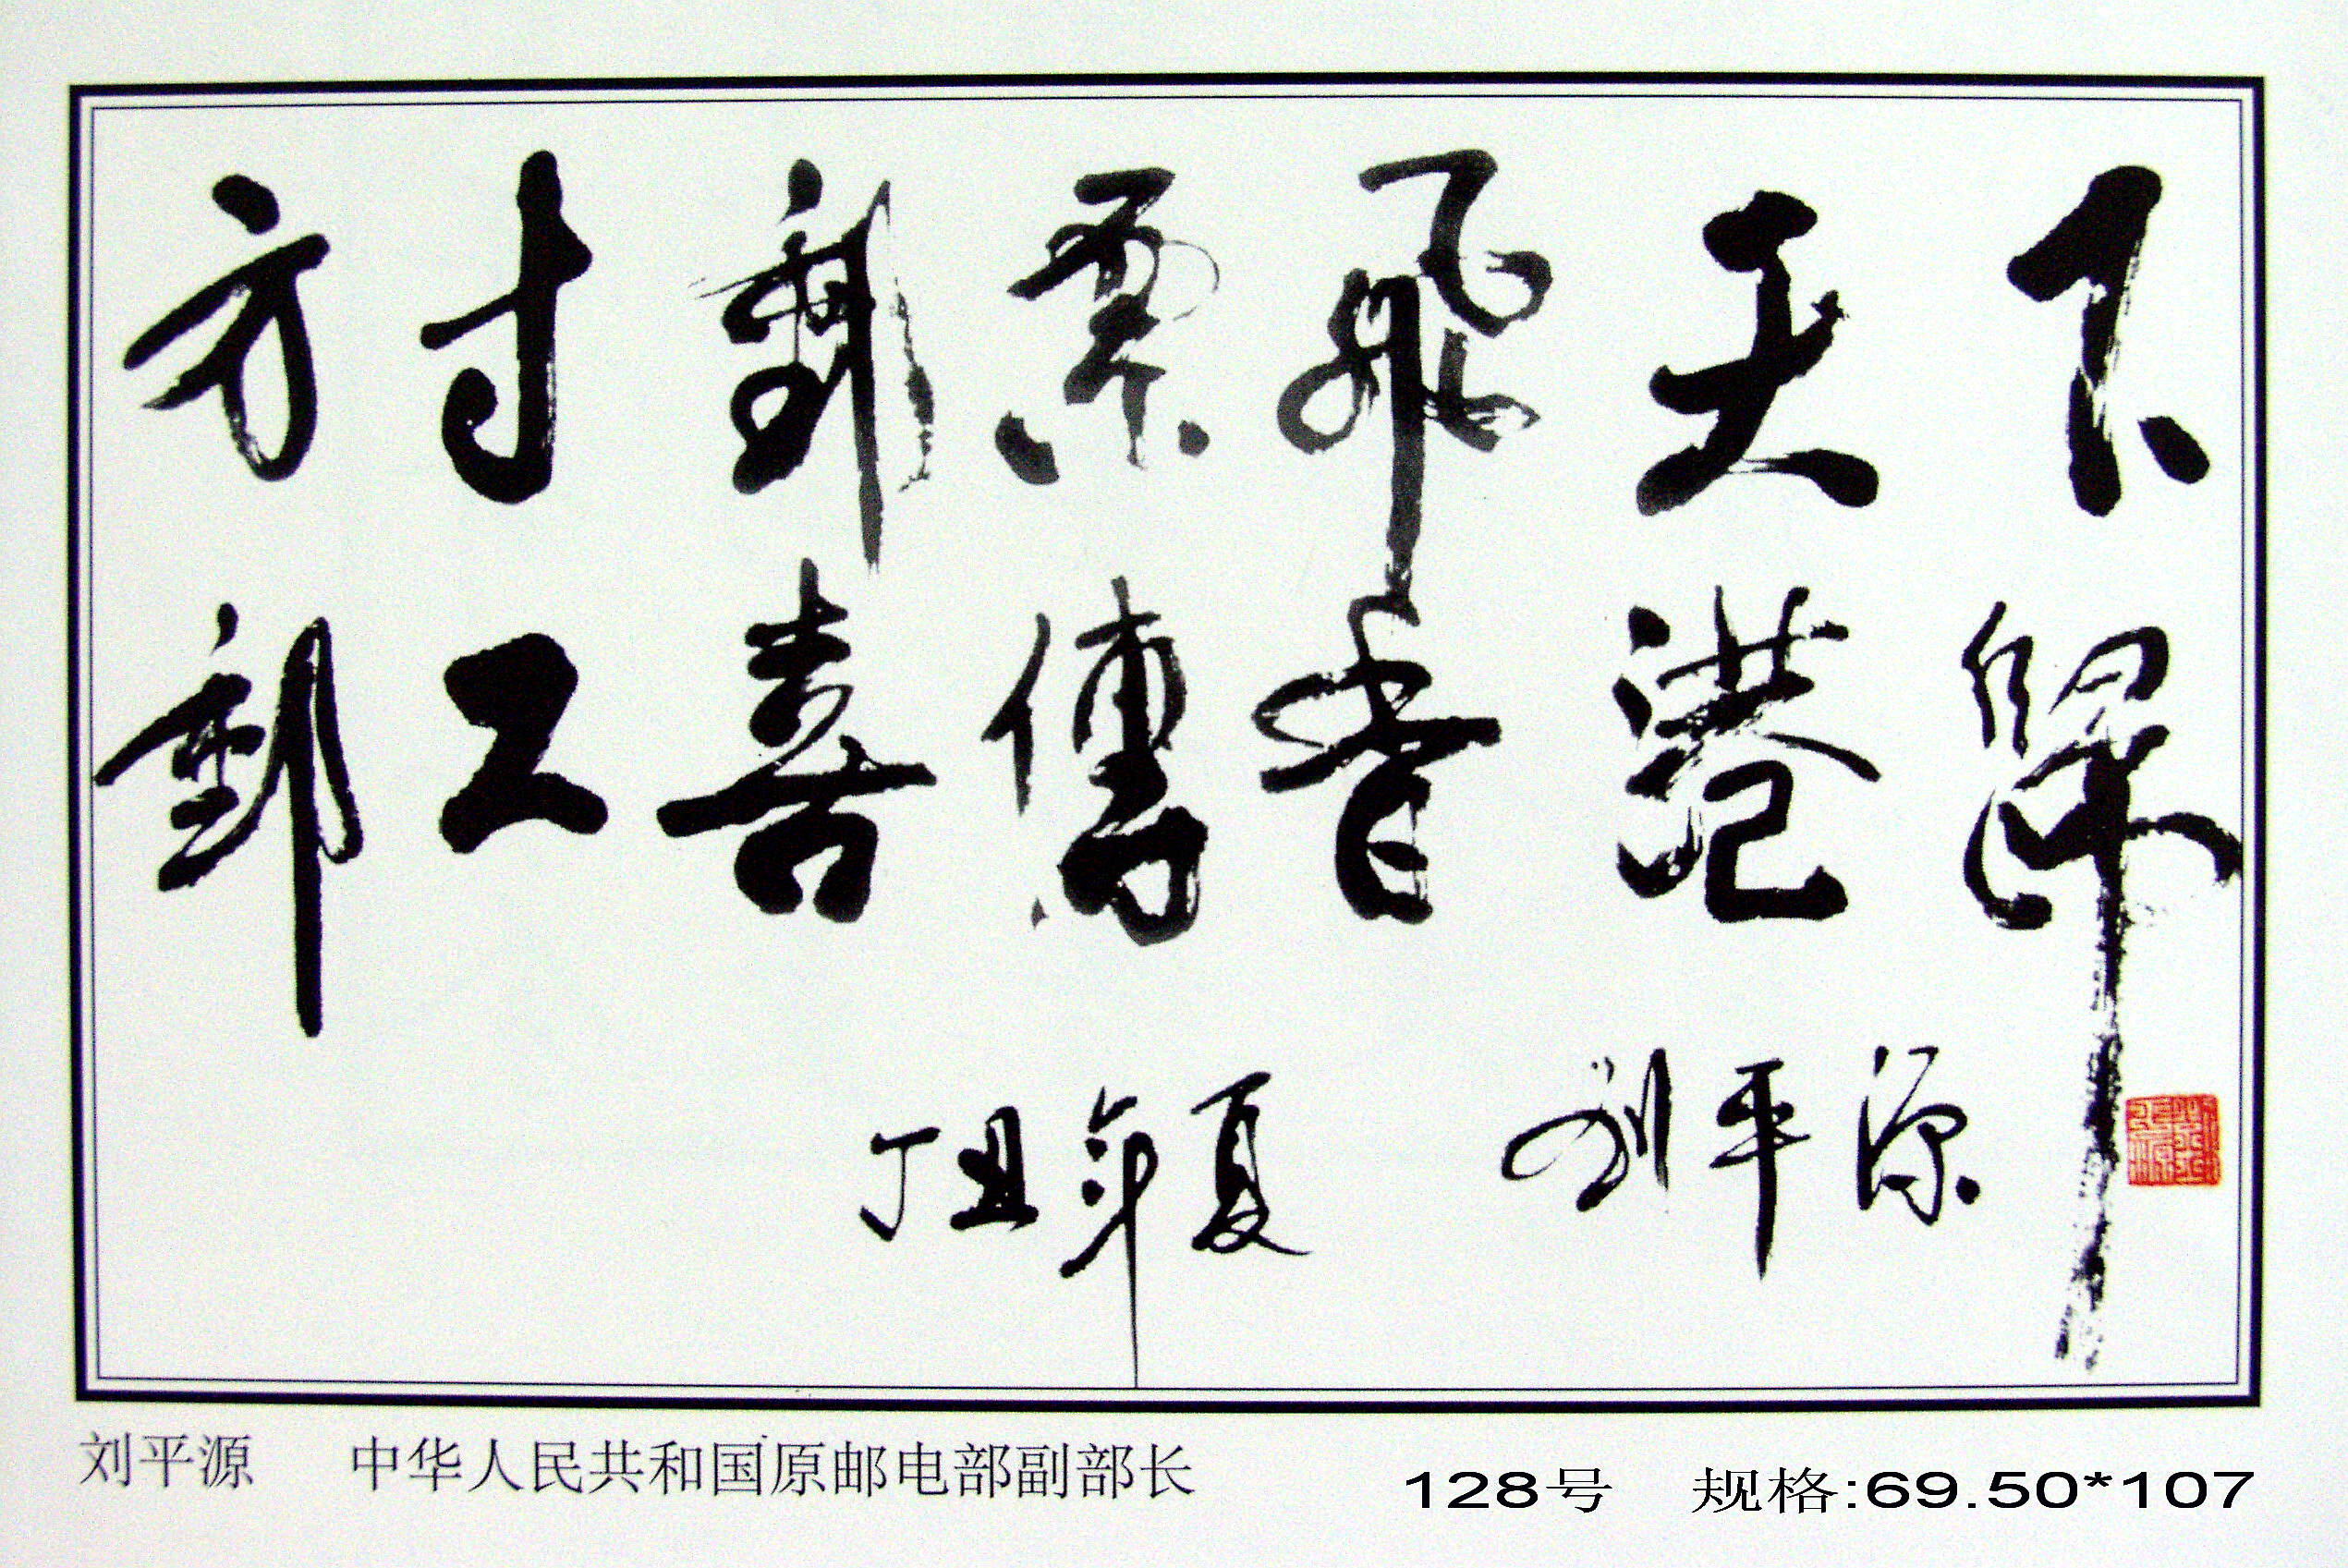 方寸郵票飛天下
郵工喜傳香港歸
丁丑年夏 刘平源
刘平源 中华人民共和国原邮电部副部长 128号 规格:69.50*107